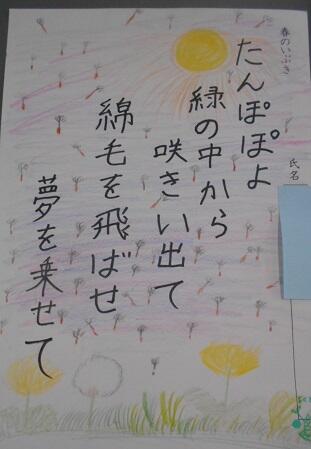 春のいぶき
たんぽぽよ
緑の中から
咲きい出て
綿毛を飛ばせ
夢を乗せて
氏名